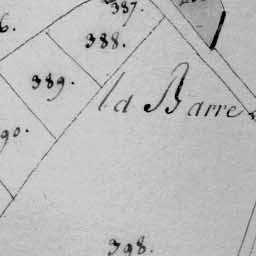 387.
6.
388.
389.
la Barre
90.
398.